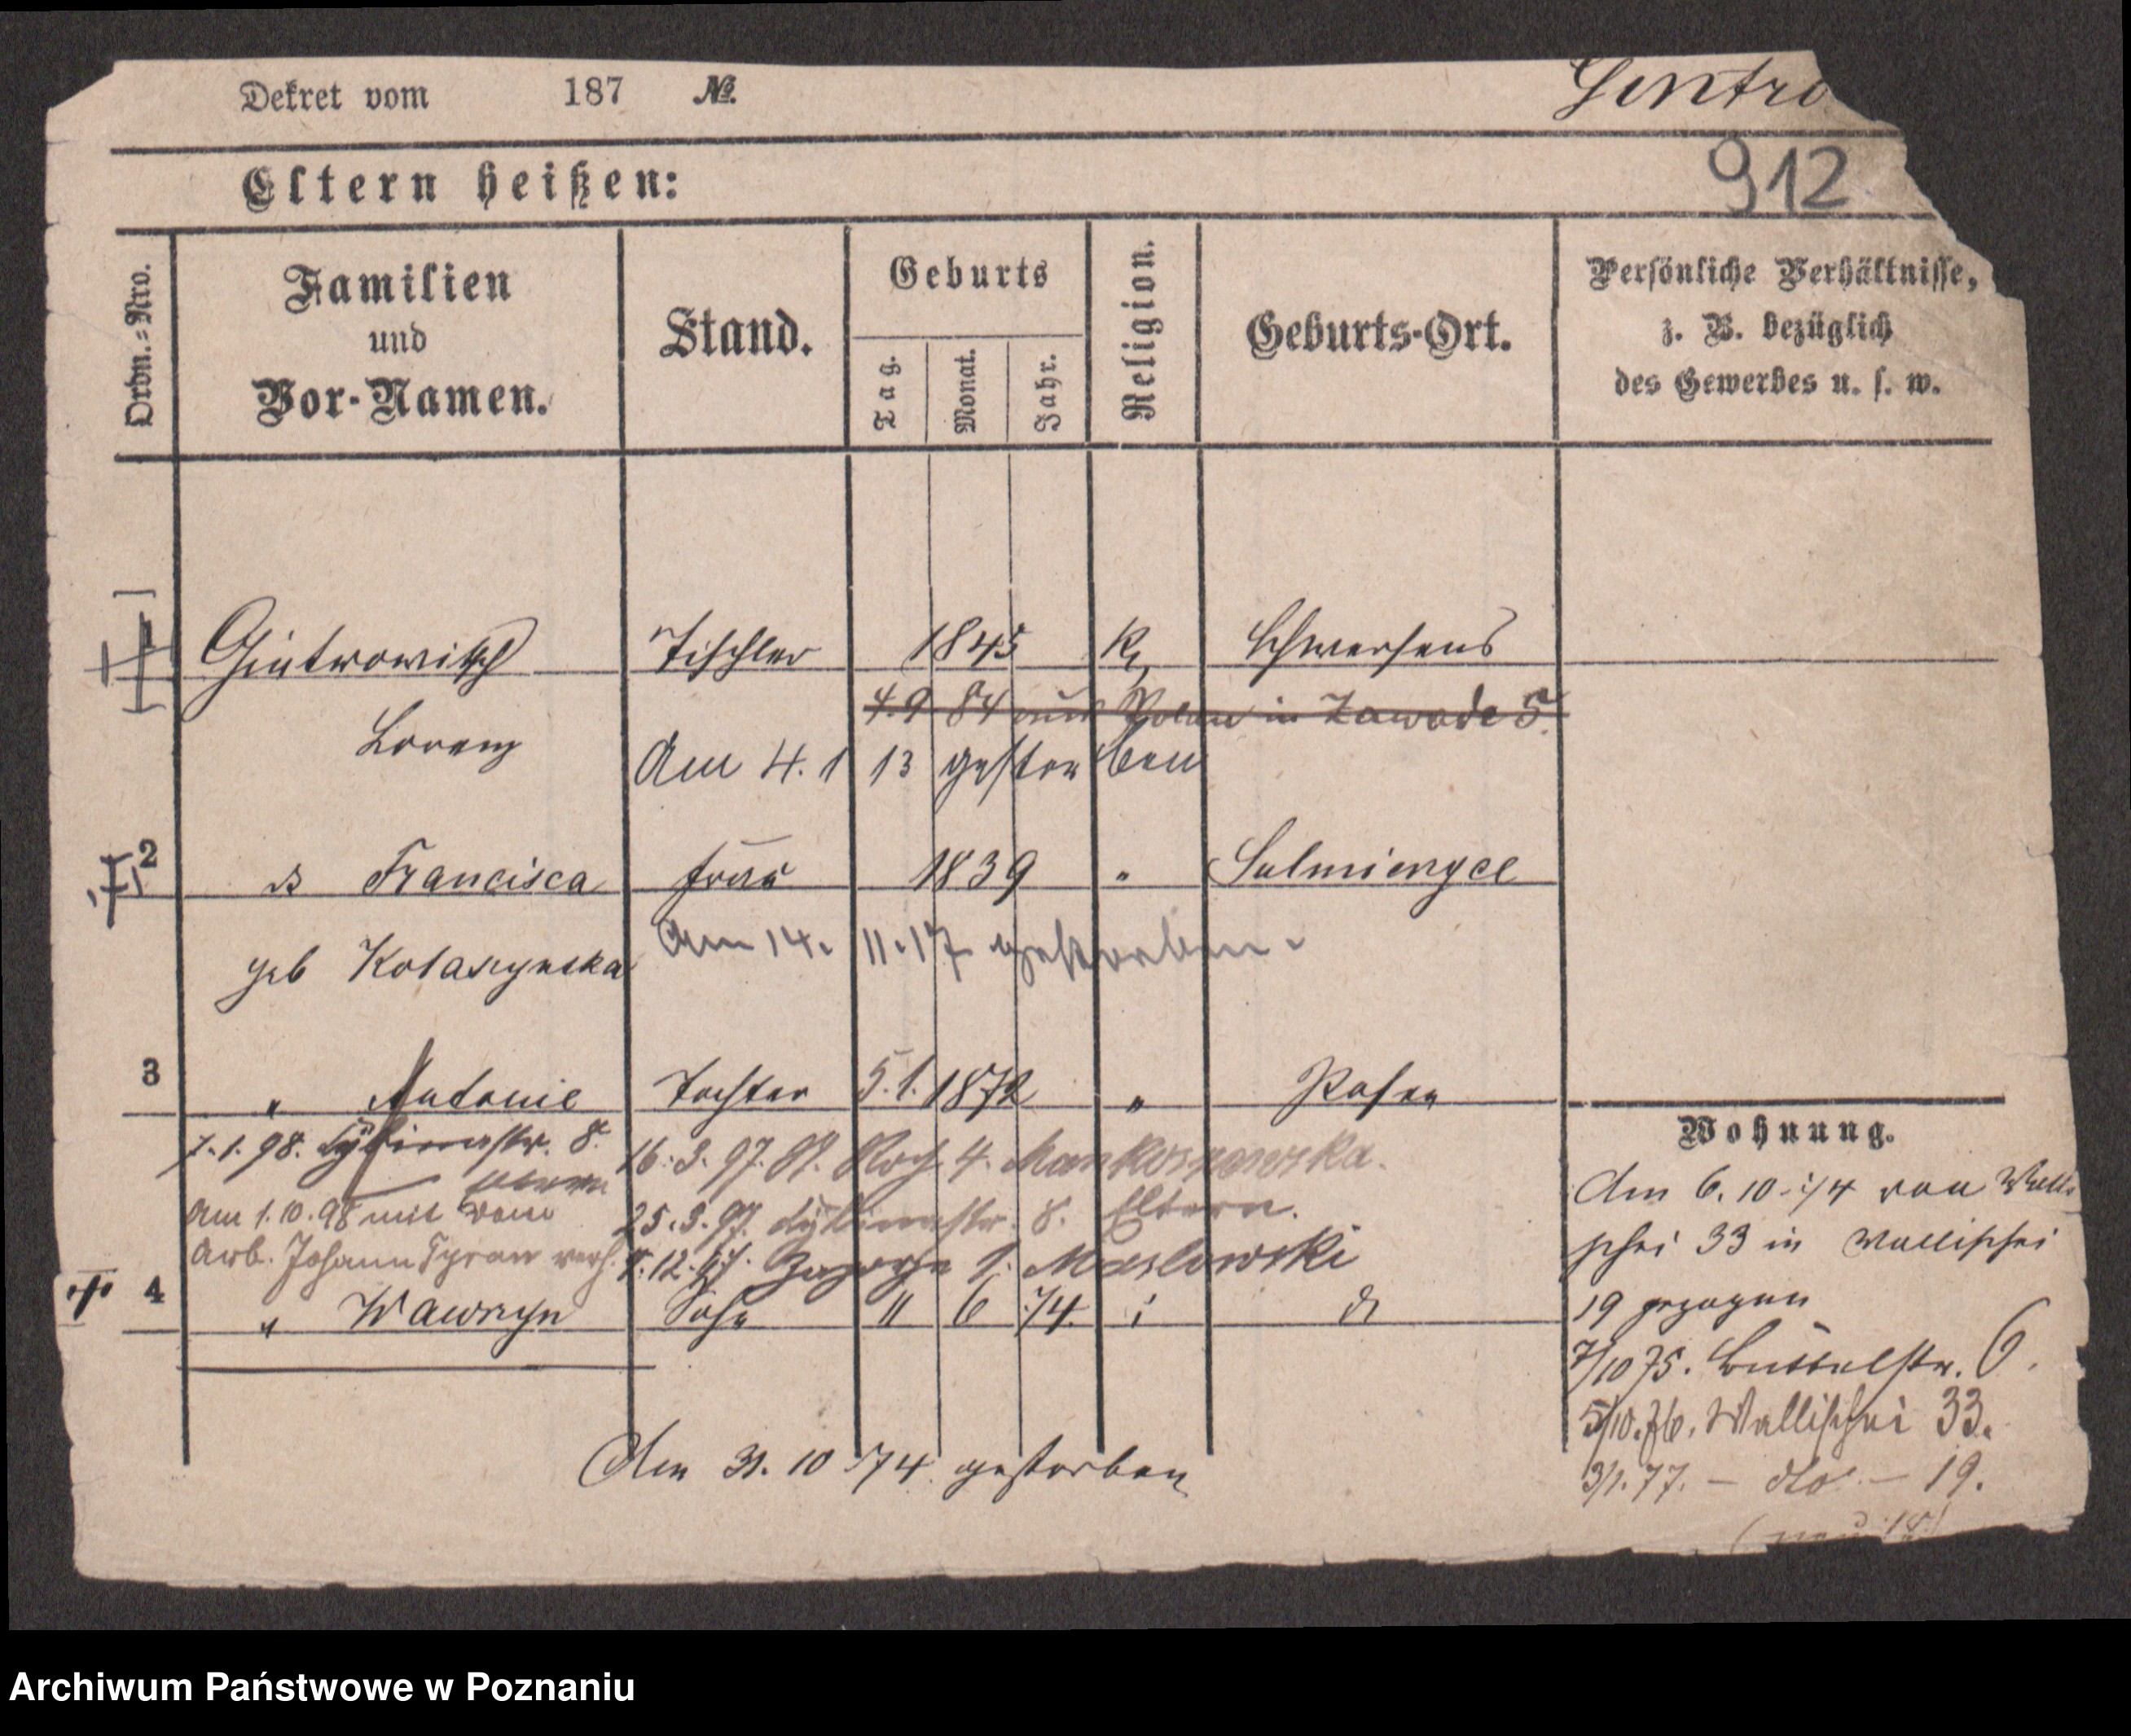 Dekret vom 187 №.
Gintro
912
Eltern heißen:
Ordn.=Nro.
Familien
und
Vor-Namen.
Stand.
Geburts
Tag.
Monat.
Jahr.
Religion.
Geburts-Ort.
Persönliche Verhältnisse,
z. B. bezüglich
des Gewerbes u. s. w.
1 Gintrowitsch Tischler 1845 K. Schwersens
4.9 84 aus Polen in Zawade 5.
Lorenz
Am 4. 1 13 gestorben
2 do Francisca Frau 1839 " Sulmiengce
Am 14. 11. 17 gestorben.
geb Kolaszynska
3 " Antonie Tochter 5. 1. 1872 " Posen
Wohnung.
1. 1. 98. 8. 16. 3. 97. 4.
Eltern
Am 1. 10. 98 mit dem 25. 3. 97. 8. Eltern.
Arb. Johann Tyran verh. 12. 97. Zagorze 1. Maslowski
4 " Wawrzyn Sohn 11 6 74. i do
Am 31. 10 74 gestorben
Am 6. 10. 74 von Walli
schei 33 in Wallischei
19 gezogen
7/10 75. 6.
5/10. 76. Wallischei 33.
3/1. 77. – do – 19.
Archiwum Państwowe w Poznaniu